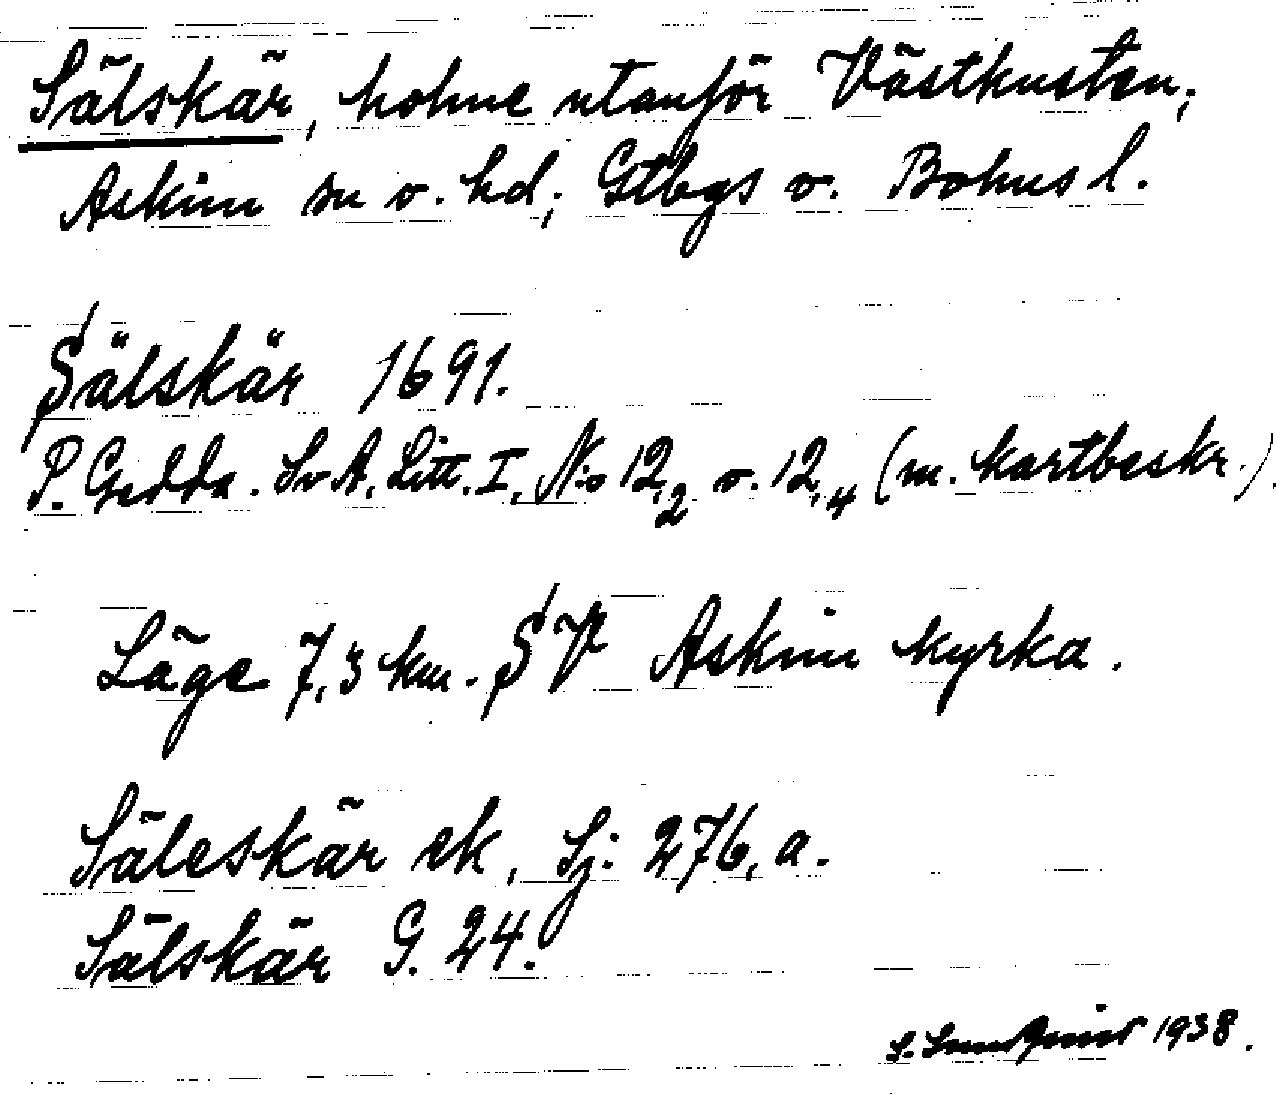 Sälskär, holme utanför Västkusten;
Askim sn o. hd; Gtbgs o. Bohusl.
Sälskär 1691.
P. Gedda. Sv A. Litt. I, N:o 12,2 o. 12,4 (m. kartbeskr.).
Läge 7,3 km. SV Askim kyrka.
Säleskär ek, Sj: 276, a.
Sälskär G. 24.
S. 1938.